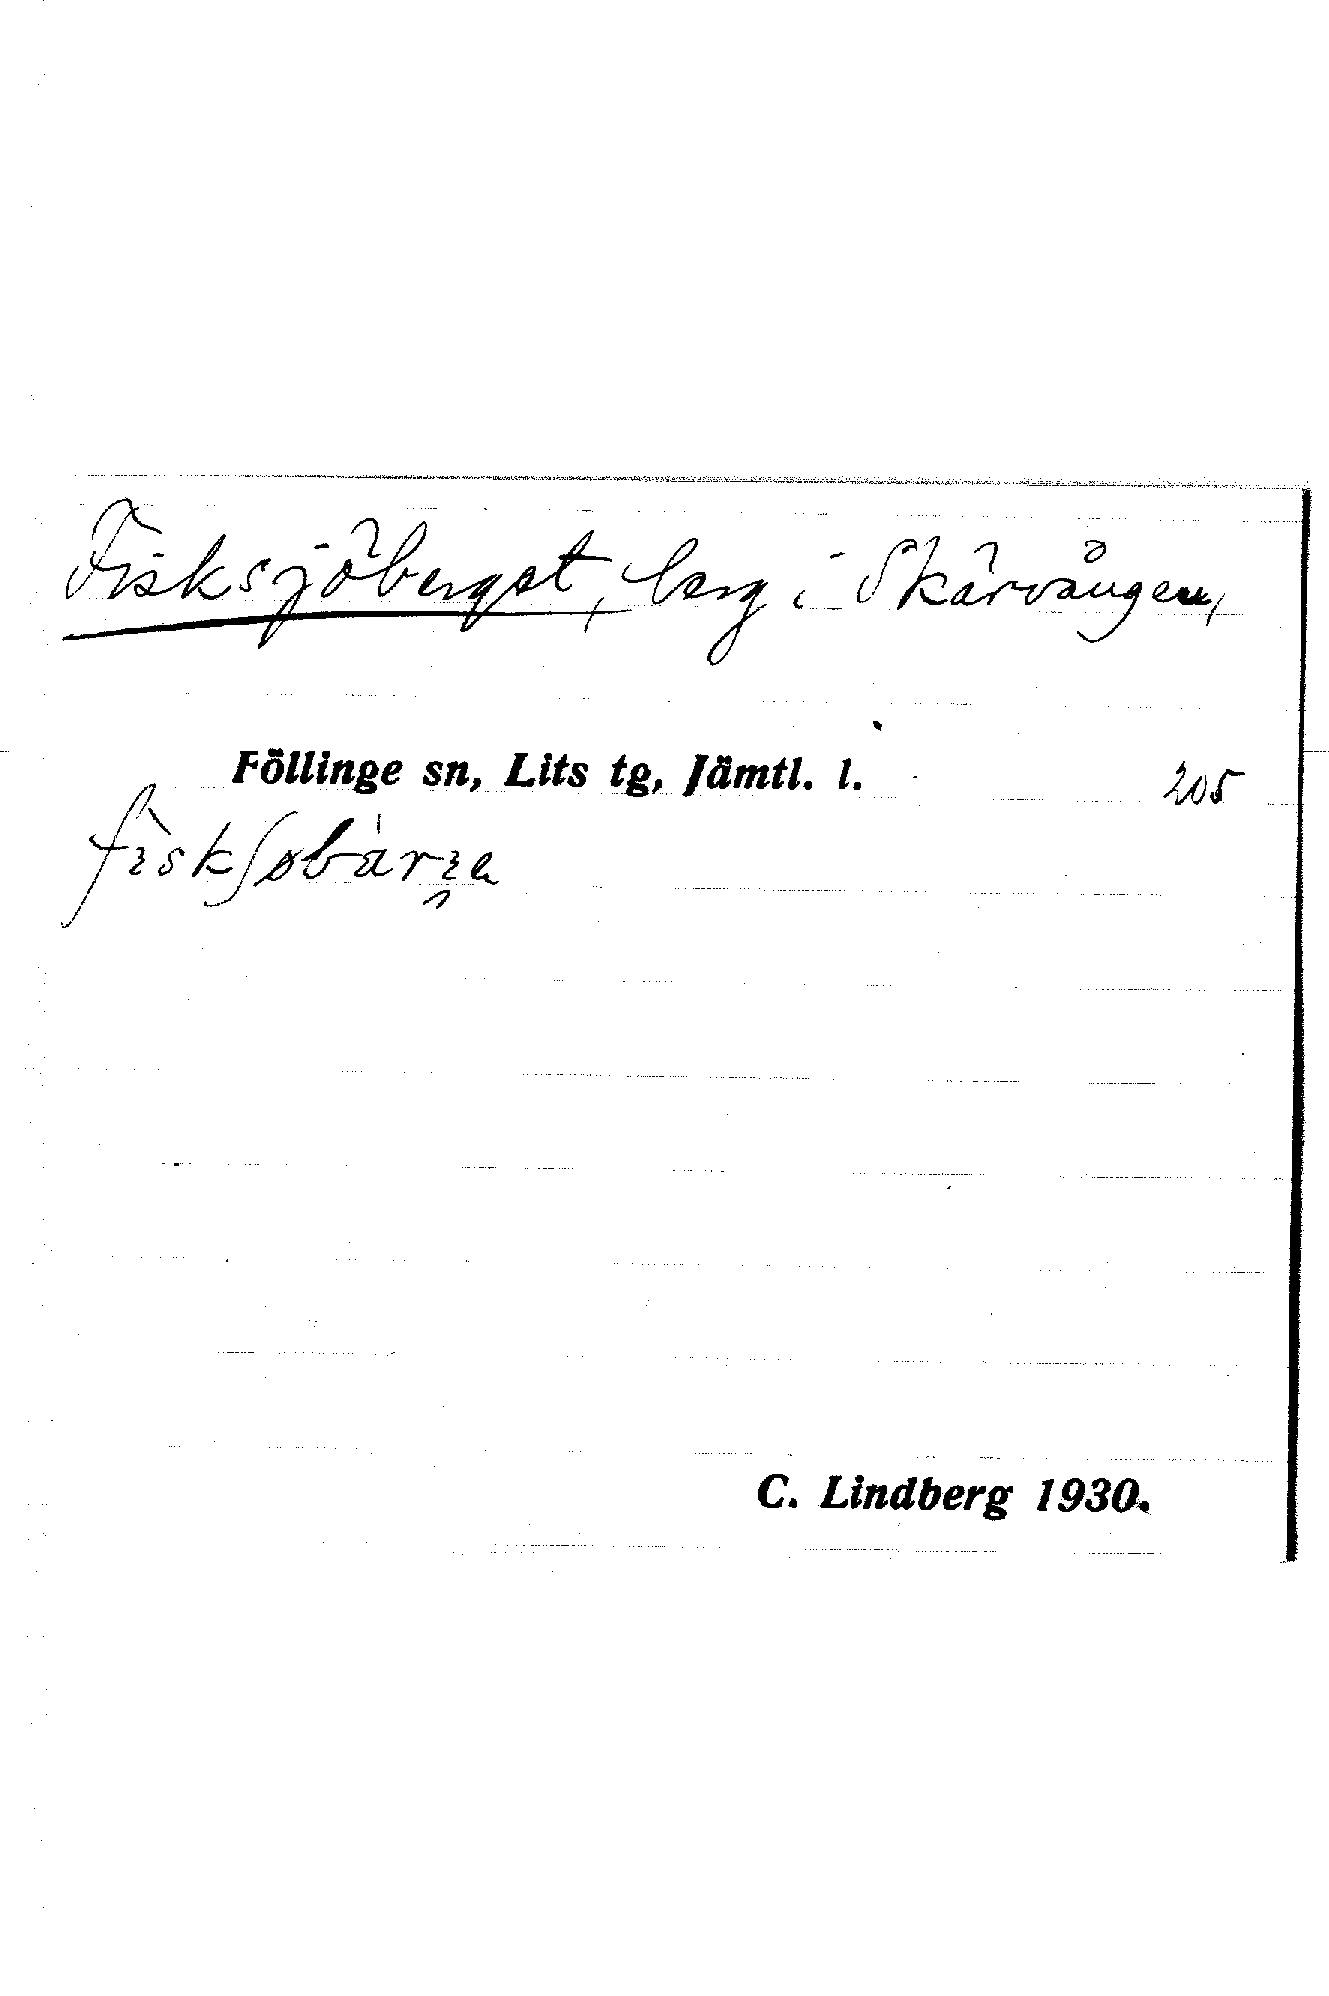 Fisksjöberget, berg i Skärvången,
Föllinge sn, Lits tg, Jämtl. l. 205
C. Lindberg 1930.